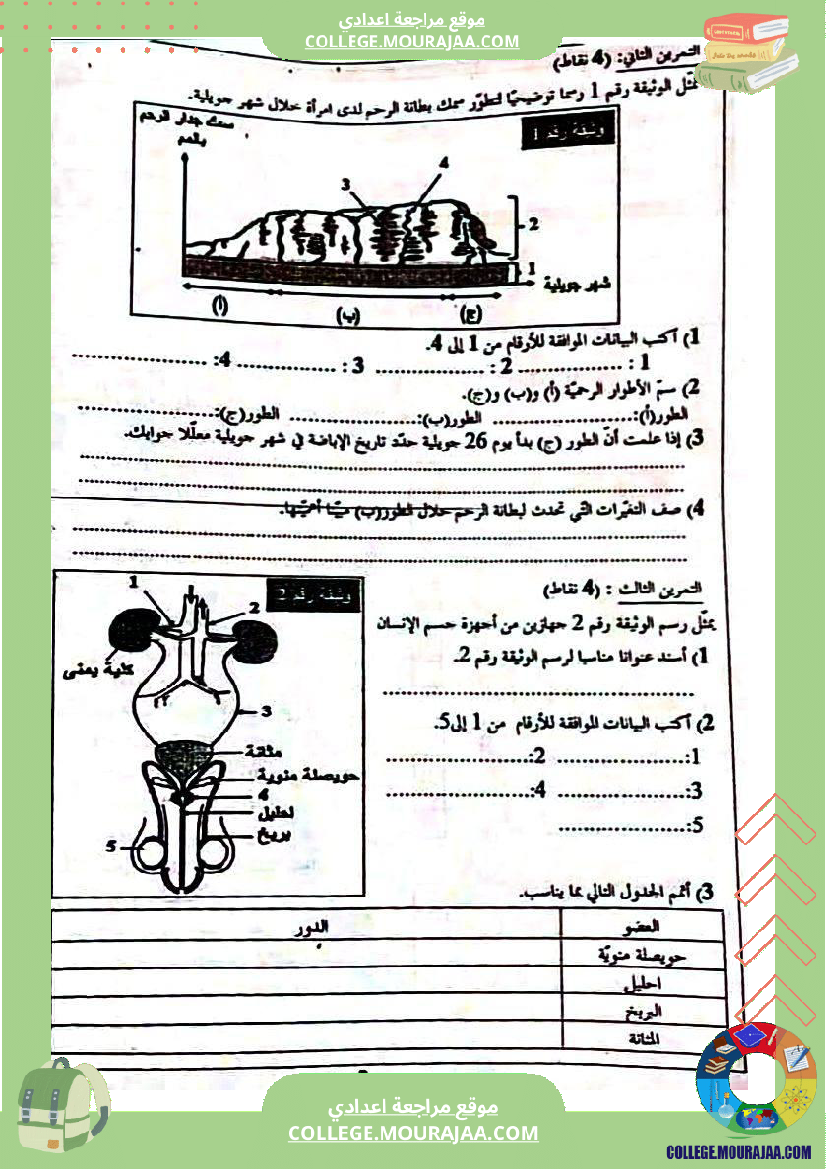 موقع مراجعة اعدادي
COLLEGE.MOURAJAA.COM
التمرين الثاني: (4 نقاط)
تمثّل الوثيقة رقم 1 رسما توضيحيّا لتطوّر سمك بطانة الرحم لدى امرأة خلال شهر جويلية.
وثيقة رقم 1
سمك جدار الرحم
بالمم
4
3
2
1
شهر جويلية
(أ)
(ب)
(ج)
1) أكتب البيانات الموافقة للأرقام من 1 إلى 4.
1 : .................. 2 : .................. 3 : .................. 4: ......................
2) سمّ الأطوار الرحميّة (أ) و(ب) و(ج).
الطور(أ):........................ الطور(ب):...................... الطور(ج):......................
3) إذا علمت أنّ الطور (ج) بدأ يوم 26 جويلية حدّد تاريخ الإباضة في شهر جويلية معلّلا جوابك.
4) صف التغيّرات التي تحدث لبطانة الرحم خلال الطور(ب) مبيّنا أهميّتها.
التمرين الثالث : (4 نقاط)
يمثّل رسم الوثيقة رقم 2 جهازين من أجهزة جسم الإنسان
1) أسند عنوانا مناسبا لرسم الوثيقة رقم 2.
2) أكتب البيانات الموافقة للأرقام من 1 إلى5.
1:...................... 2:........................
3:...................... 4:........................
5:......................
وثيقة رقم 2
1
2
كلية يمنى
3
مثانة
حويصلة منوية
4
احليل
بربخ
5
3) أتمم الجدول التالي بما يناسب.
العضو الدور
حويصلة منويّة
احليل
البربخ
المثانة
موقع مراجعة اعدادي
COLLEGE.MOURAJAA.COM
COLLEGE.MOURAJAA.COM